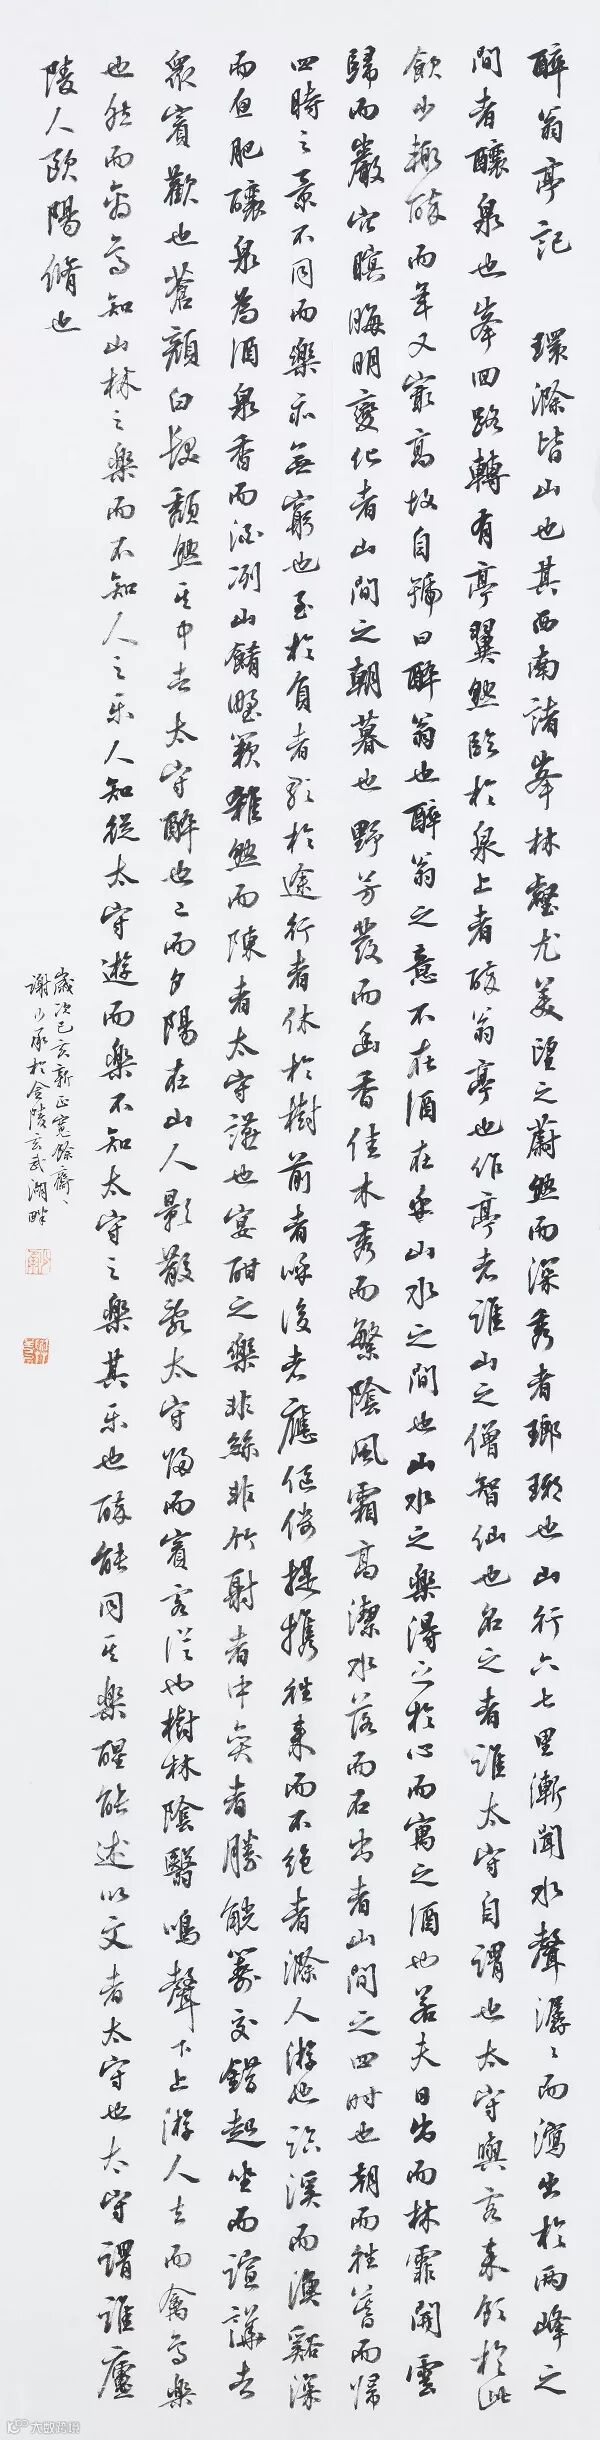 醉翁亭記　環滁皆山也其西南諸峯林壑尤美望之蔚然而深秀者瑯琊也山行六七里漸聞水聲潺〻而瀉出於兩峰之
間者釀泉也峯回路轉有亭翼然臨於泉上者醉翁亭也作亭者誰山之僧智仙也名之者誰太守自謂也太守與客来飲於此
飲少輒醉而年又最高故自號曰醉翁也醉翁之意不在酒在乎山水之間也山水之樂得之於心而寓之酒也若夫日出而林霏開雲
歸而巖穴暝晦明變化者山間之朝暮也野芳發而幽香佳木秀而繁陰風霜高潔水落而石出者山間之四时也朝而往暮而歸
四時之景不同而樂亦無窮也至於負者歌於途行者休於樹前者呼後者應傴僂提攜往來而不絕者滁人游也臨溪而漁谿深
而魚肥釀泉為酒泉香而酒冽山餚野蔌雜然而陳者太守讌也宴酣之樂非絲非竹射者中奕者勝觥籌交錯起坐而諠譁者
衆賓歡也蒼顏白髮頹然其中者太守醉也已而夕陽在山人影散亂太守歸而賓客從也樹林陰翳鳴聲下上游人去而禽鳥樂
也然而禽鳥知山林之樂而不知人之乐人知從太守遊而樂不知太守之樂其乐也醉能同其樂醒能述以文者太守也太守謂誰廬
陵人歐陽脩也
歲次己亥新正寬餘齋〻
謝少承於金陵玄武湖畔
大数跨境